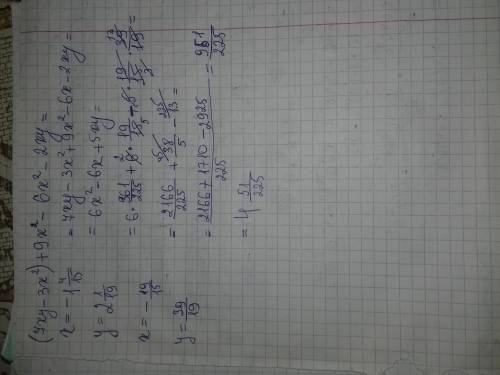 (7xy − 3x²) + 9x² − 6x² − 2xy =
x = −1 4/15 = 7xy − 3x² + 9x² − 6x − 2xy =
y = 2 1/19 = 6x² − 6x + 5xy =
x = −19/15 = 6 · 361/225 + 6 · 19/15 · 19/15 · 39/19 =
y = 39/19 = 2166/225 + 38/5 − 13 =
= (2166 + 1710 − 2925)/225 = 951/225
= 4 51/225